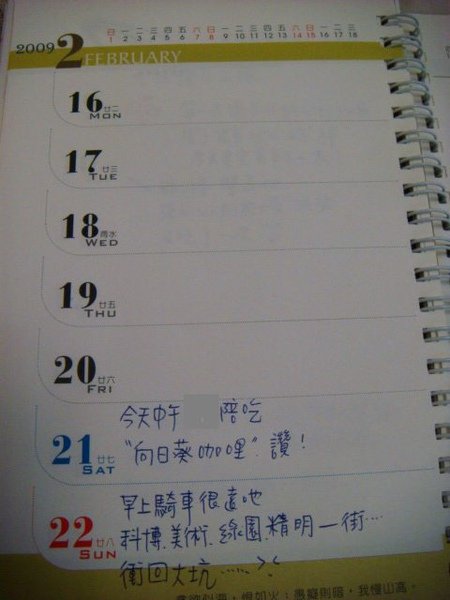 2009 2 FEBRUARY
日 一 二 三 四 五 六 日 一 二 三 四 五 六 日 一 二 三
1 2 3 4 5 6 7 8 9 10 11 12 13 14 15 16 17 18
16 廿二 MON
17 廿三 TUE
18 雨水 WED
19 廿五 THU
20 廿六 FRI
今天中午 陪吃
21 廿七 SAT
"向日葵咖哩" 讚！
早上騎車很遠地
22 廿八 SUN
科博.美術.綠園.精明一街…
衝回大坑……><
恨如火；愚癡則暗，我慢山高。